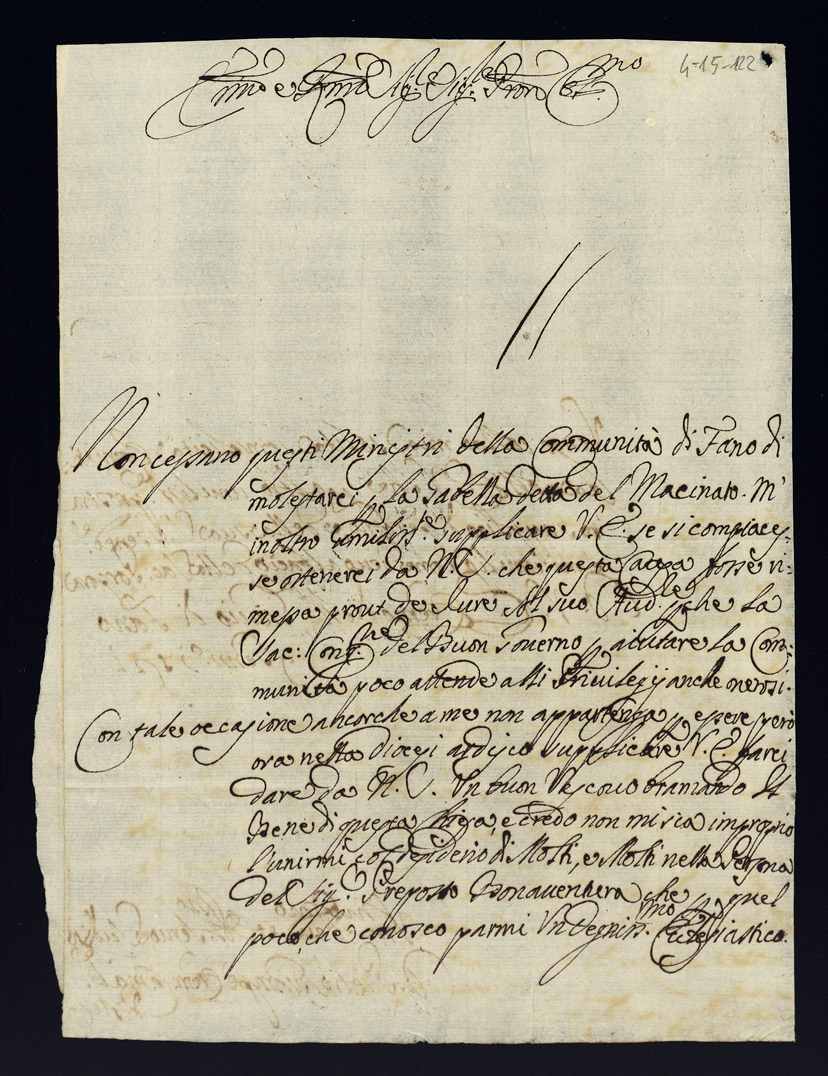 4-15-122
Em̃o e Rm̃o Sig.re Sig.re Pron Col.mo
Non cessano questi Ministri della Communità di Fano di
molestarci p la Gabella detta del Macinato. M'
inoltro humilm.te supplicare V. E. se si compiaces-
se ottenerci da N. S. che questa Causa fosse ri-
messa prout de Iure al suo Aud.re p che la
Sac: Cong.ne del Buon Governo p aiutare la Com-
munità poco attende alli Privilegij anche onerosi.
Con tale occasione ancorche a me non appartenga p essere però
ora nella diocesi ardisco supplicare V. E. farci
dare da N. S. Un buon Vescovo bramando Il
Bene di questa Chiesa, e credo non mi sia improprio
l'unirmi col desiderio di Molti, e Molti nella Persona
del Sig.r Preposto Bonaventura che p quel
poco, che conosco parmi Un degniss.mo Ecclesiastico.